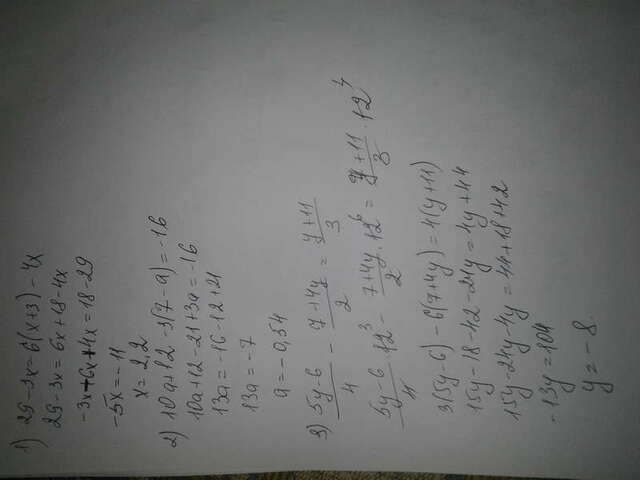 1) 29-3x=6(x+3)-4x
29-3x=6x+18-4x
-3x-6x+4x=18-29
-5x=-11
x=2,2
2) 10a+12-3(7-a)=-16
10a+12-21+3a=-16
13a=-16-12+21
13a=-7
a=-0,54
3) (5y-6)/4 - (7+4y)/2 = (y+11)/3
(5y-6)/4 · 12³ - (7+4y)/2 · 12⁶ = (y+11)/3 · 12⁴
3(5y-6)-6(7+4y)=4(y+11)
15y-18-42-24y=4y+44
15y-24y-4y=44+18+42
-13y=104
y=-8.